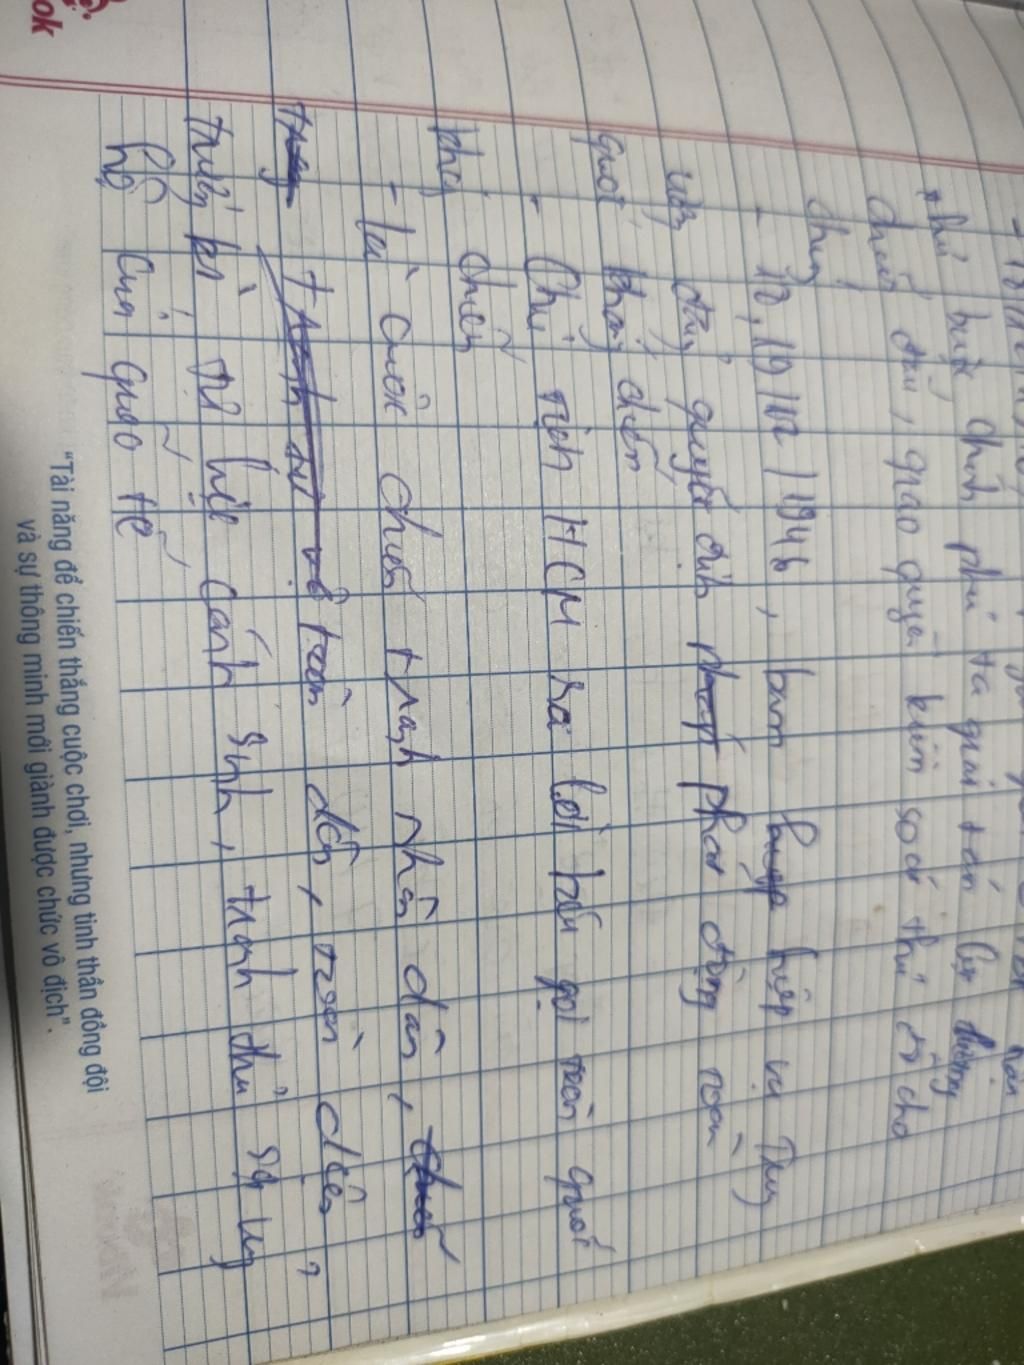 - 18/12/1946
thủ buộc chính phủ ta giải tán lực lượng
chiến đấu, giao quyền kiểm soát thủ đô cho
chúng
- 18, 19/12/1946, ban họp hội vụ Trung
ương đảng quyết định pháp phát động toàn
quốc kháng chiến
- Chủ tịch HCM ra lời kêu gọi toàn quốc
kháng chiến
- là cuộc chiến tranh nhân dân,
toàn dân, toàn diện,
trường kì tự lực cánh sinh, tranh thủ sự ủng
hộ của quốc tế
"Tài năng để chiến thắng cuộc chơi, nhưng tinh thần đồng đội
và sự thông minh mới giành được chức vô địch".
ok